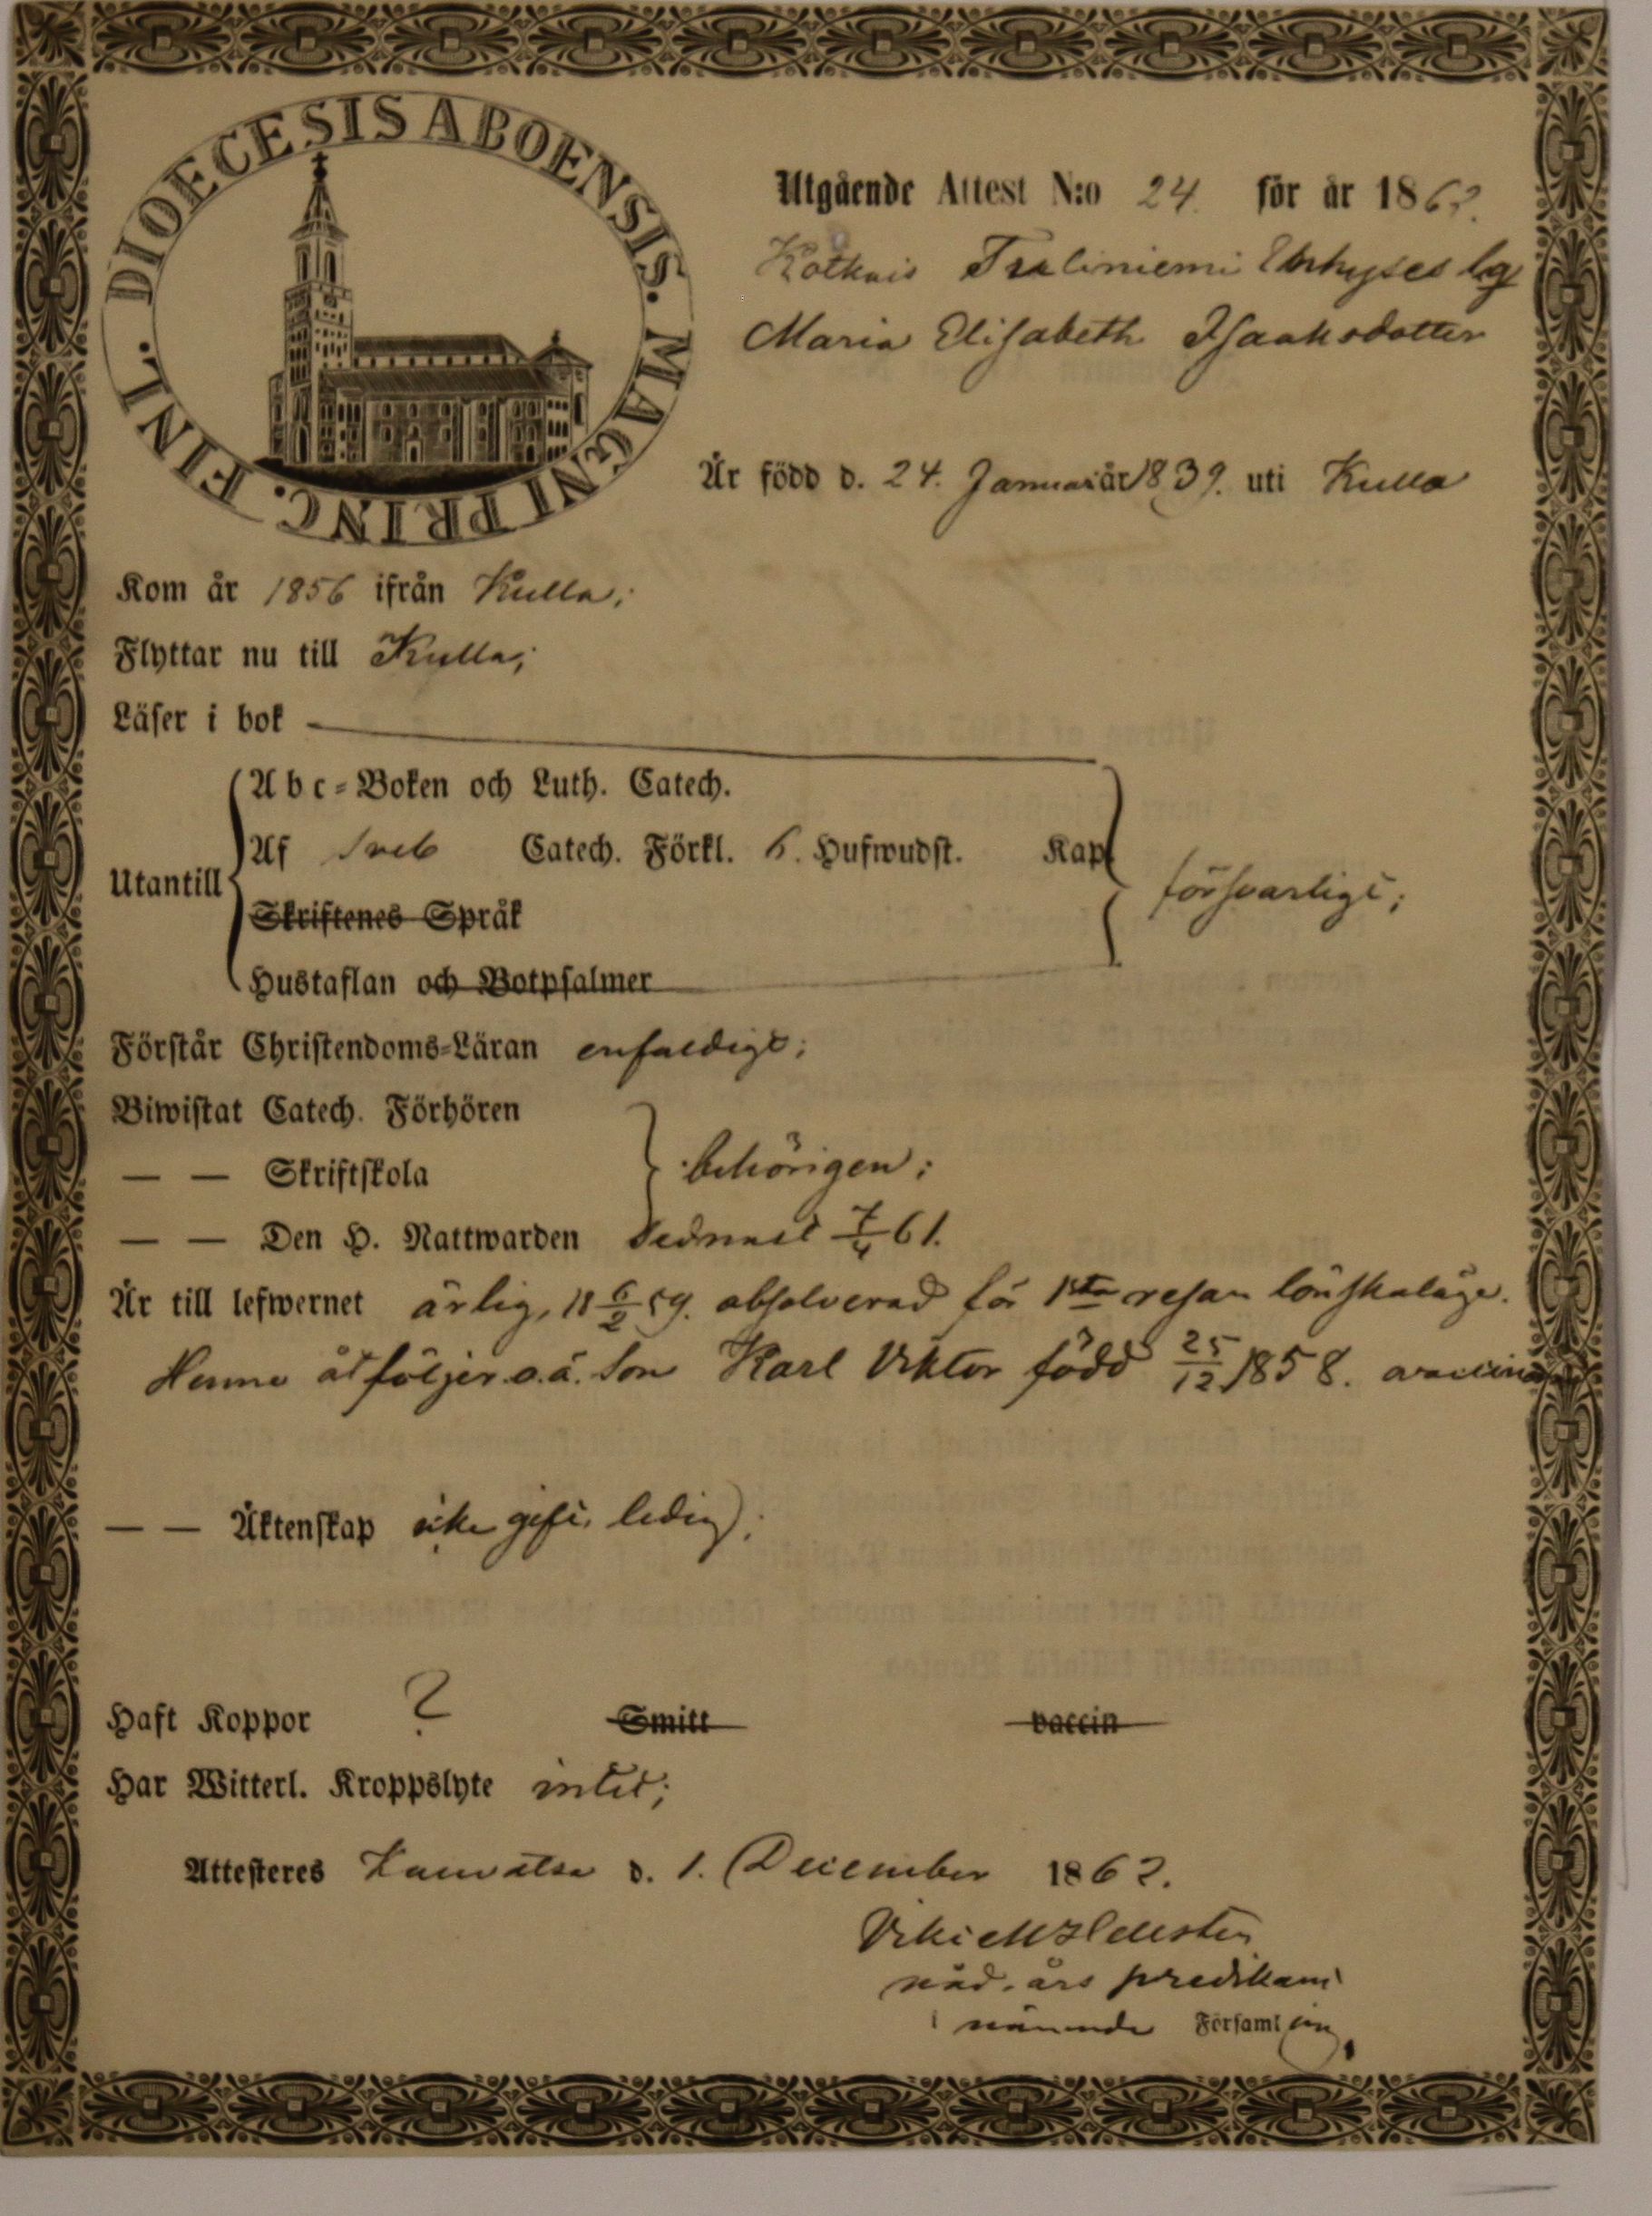 DIOECESIS ABOENSIS. MAGNI PRINC. FINL.
Utgående Attest N:o 24 för år 1862.
Maria Elisabeth Isaaksdotter
Är född d. 24. Januari år 1839. uti Kulla
Kom år 1856 ifrån Kulla;
Flyttar nu till Kulla;
Läser i bok
Abc-Boken och Luth. Catech.
Af Sveb Catech. Förkl. 6. Hufwudst. Kap
Utantill
försvarligt;
Skriftenes Språk
Hustaflan och Botpsalmer
Förstår Christendoms-Läran enfaldigt;
Biwistat Catech. Förhören
— — Skriftskola behörigen;
— — Den H. Nattwarden sednast 7/4 61.
Är till lefwernet ärlig, 18 6/2 59. absolverad för 1sta resan lönskaläge.
Henne åtföljer o.ä. Son Karl Viktor född 25/12 1858.
— — Äktenskap icke gift, ledig;
Haft Koppor ? Smitt vaccin
Har Witterl. Kroppslyte intet;
Attesteres d. 1. December 1862.
nåd. års predikant
i nämnde Församling,